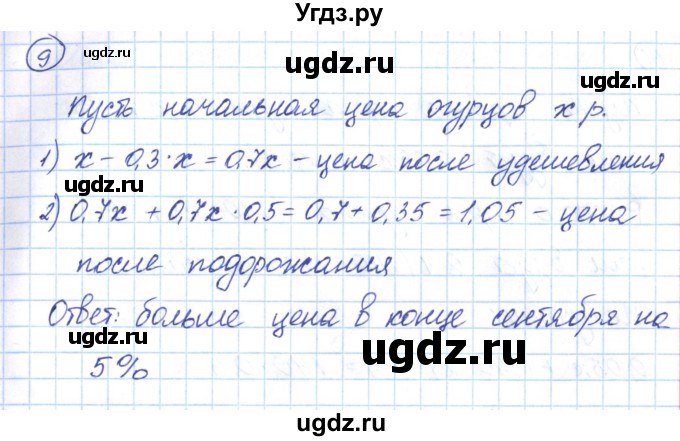 Угдз.ру
9
ugdz.ru ugdz.ru ugdz.ru
Пусть начальная цена огурцов x р.
ugdz.ru
1) x - 0,3·x = 0,7x - цена после удешевления
ugdz.ru ugdz.ru
2) 0,7x + 0,7x·0,5 = 0,7 + 0,35 = 1,05 - цена
ugdz.ru
после подорожания
ugdz.ru ugdz.ru
Ответ: больше цена в конце сентября на
ugdz.ru
5%
ugdz.ru ugdz.ru
ugdz.ru